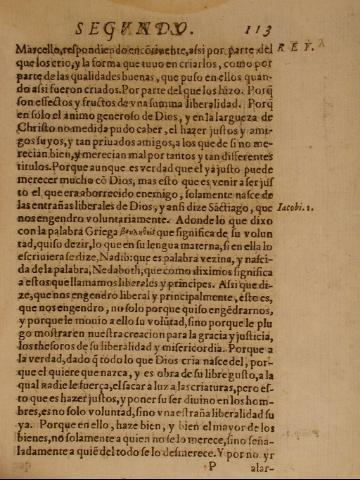 SEGVNDO. 113
Marcello, respondiendo encōtinente, assi por parte del
que los crio, y la forma que tuuo en criarlos, como por
parte de las qualidades buenas, que puso en ellos quan-
do assi fueron criados. Por parte del que los hizo. Porq̃
son effectos y fructos de vna summa liberalidad. Porq̃
en solo el animo generoso de Dios, y en la largueza de
Christo no medida pudo caber, el hazer justos y ami-
gos suyos, y tan priuados amigos, a los que de si no me-
recian bien, y merecian mal por tantos y tan differentes
titulos. Porque aunque es verdad que el ya justo puede
merecer mucho cō Dios, mas esto que es venir a ser jus
to el que era aborrecido enemigo, solamente nasce de
las entrañas liberales de Dios, y ansi dize Sāctiago, que
nos engendro voluntariamente. Adonde lo que dixo
con la palabra Griega que significa de su volun
tad, quiso dezir, lo que en su lengua materna, si en ella lo
escriuiera se dize, Nadib: que es palabra vezina, y nasci-
da de la palabra, Nedaboth, que como diximos significa
a estos que llamamos liberales y principes. Assi que di-
ze, que nos engendro liberal y principalmente, esto es,
que nos engendro, no solo porque quiso engēdrarnos,
y porque le mouio a ello su volūtad, sino porque le plu
go mostrar en nuestra creacion para la gracia y justicia,
los thesoros de su liberalidad y misericordia. Porque a
la verdad, dado q̃ todo lo que Dios cria nasce del, por-
que el quiere que nazca, y es obra de su libre gusto, a la
qual nadie le fuerça, el sacar a luz a las criaturas, pero es-
to que es hazer justos, y poner su ser diuino en los hom-
bres, es no solo voluntad, sino vna estraña liberalidad su
ya. Porque en ello, haze bien, y bien el mayor de los
bienes, no solamente a quien no se lo merece, sino seña-
ladamente a quiē del todo se lo desmerece. Y por no yr
P alar-
REY.
Iacobi. 1.